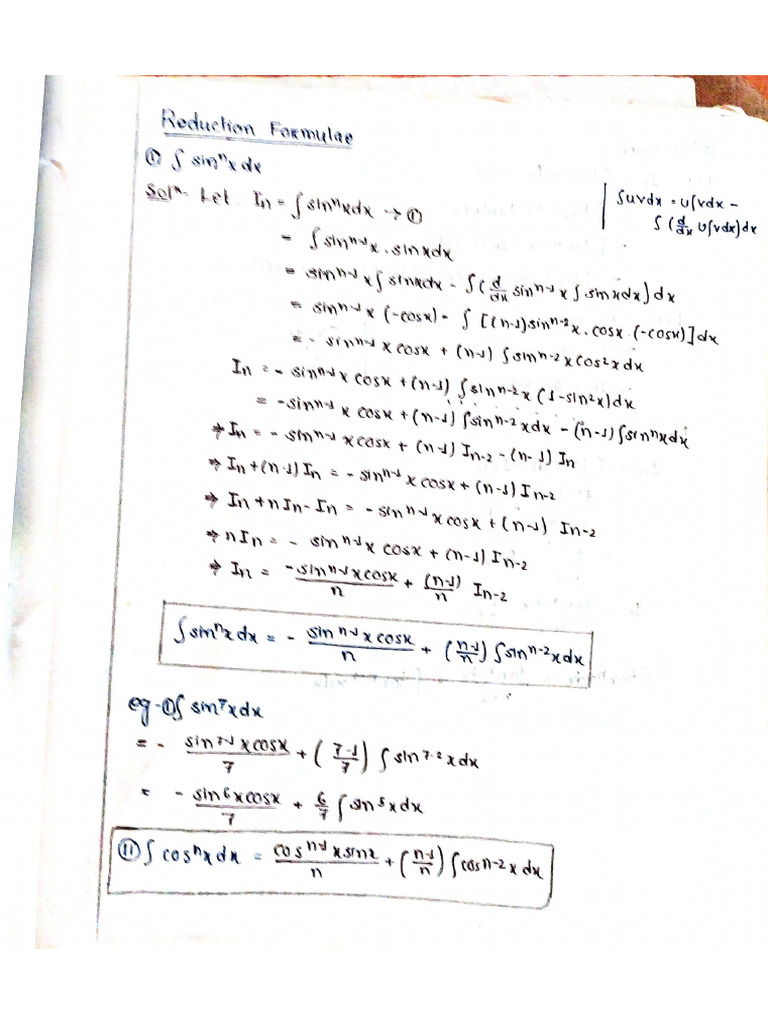 Reduction Formulae
① ∫ sinⁿx dx
Solⁿ- Let Iₙ = ∫sinⁿxdx → ①
∫uvdx = u∫vdx -
∫(d/dx u∫vdx)dx
= ∫sinⁿ⁻¹x . sinxdx
= sinⁿ⁻¹x∫sinxdx - ∫(d/dx sinⁿ⁻¹x∫sinxdx)dx
= sinⁿ⁻¹x (-cosx) - ∫[(n-1)sinⁿ⁻²x. cosx (-cosx)]dx
= - sinⁿ⁻¹x cosx + (n-1) ∫sinⁿ⁻²x cos²x dx
Iₙ = - sinⁿ⁻¹x cosx + (n-1) ∫sinⁿ⁻²x (1-sin²x)dx
= -sinⁿ⁻¹x cosx + (n-1) ∫sinⁿ⁻²xdx - (n-1)∫sinⁿxdx
⇒ Iₙ = - sinⁿ⁻¹xcosx + (n-1) Iₙ₋₂ - (n-1) Iₙ
⇒ Iₙ+(n-1)Iₙ = -sinⁿ⁻¹x cosx + (n-1) Iₙ₋₂
⇒ Iₙ+nIₙ-Iₙ = -sinⁿ⁻¹xcosx + (n-1) Iₙ₋₂
⇒ nIₙ = - sinⁿ⁻¹x cosx + (n-1) Iₙ₋₂
⇒ Iₙ = -sinⁿ⁻¹xcosx/n + (n-1)/n Iₙ₋₂
∫sinⁿxdx = - sinⁿ⁻¹xcosx/n + (n-1/n) ∫sinⁿ⁻²xdx
eg-①∫ sin⁷xdx
= - sin⁷⁻¹xcosx/7 + (7-1/7) ∫ sin⁷⁻²xdx
= - sin⁶xcosx/7 + 6/7 ∫sin⁵xdx
⑪ ∫ cosⁿxdx = cosⁿ⁻¹xsinx/n + (n-1/n) ∫cosn-2xdx